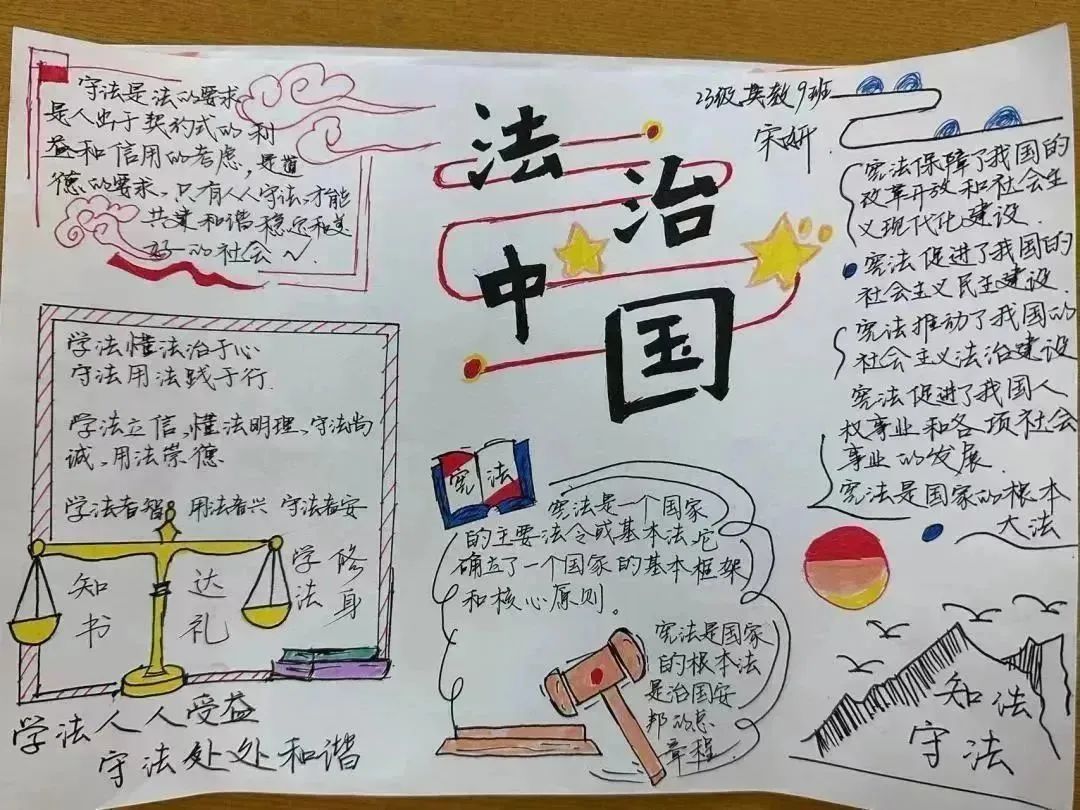 守法是法的要求
是人出于契约式的利
益和信用的考虑，是道
德的要求，只有人人守法，才能
共筑和谐稳定和美
好的社会
法治
中国
23级英教9班
宋妍
宪法保障了我国的
改革开放和社会主
义现代化建设.
宪法促进了我国的
社会主义民主建设
宪法推动了我国的
社会主义法治建设
宪法促进了我国人
权事业和各项社会
事业的发展.
宪法是国家的根本
大法
学法懂法治于心
守法用法践于行.
学法立信、懂法明理、守法尚
诚、用法崇德
学法者智 用法者兴 守法者安
知书
达礼
学法
修身
学法人人受益
守法处处和谐
宪法
宪法是一个国家
的主要法令或基本法，它
确立了一个国家的基本框架
和核心原则。
宪法是国家
的根本法
是治国安
邦的总
章程.
知法
守法